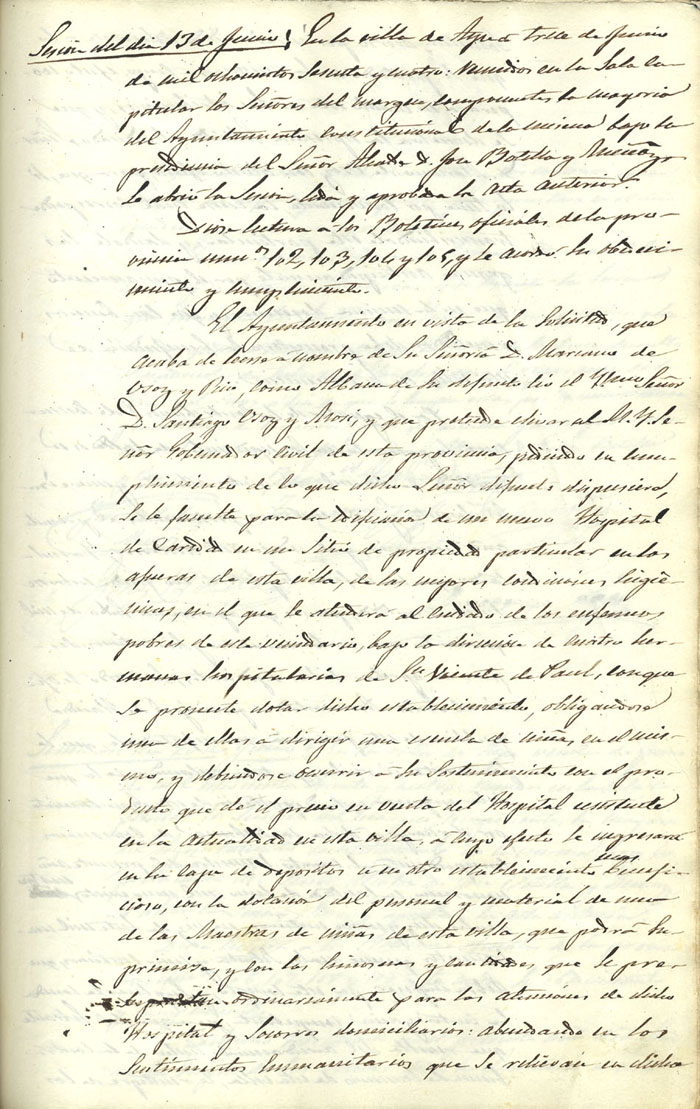 Sesión del dia 13 de Junio. En la villa de Aspe á trece de Junio
de mil ochocientos sesenta y cuatro: reunidos en la Sala ca-
pitular los Señores del margen, componentes la mayoria
del Ayuntamiento constitucional de la misma bajo la
presidencia del Señor Alcalde D. José Botella y
se abrió la Sesion, leida y aprobada la acta anterior.
Diose lectura a los Boletines oficiales de la pro-
vincia num.os 102, 103, 104 y 105, y se acordó su obedeci-
miento y cumplimiento.
El Ayuntamiento en vista de la Solicitud, que
acaba de leerse a nombre de Su Señoria D. Mariano de
Usoz y Rio, como Albacea de su difunto tio el Ylmo Señor
D. Santiago Usoz y Mozi, y que pretende elevar al M. Y. Se-
ñor Gobernador Civil de esta provincia, pidiendo en cum-
plimiento de lo que dicho Señor difunto dispusiera,
se le faculte para la edificacion de un nuevo Hospital
de Caridad en un sitio de propiedad particular en las
afueras de esta villa, de las mejores condiciones higié-
nicas, en el que se atenderá al cuidado de los enfermos
pobres de este vecindario, bajo la direccion de cuatro her-
manas hospitalarias de Sn Vicente de Paul, conque
se promete dotar dicho establecimiento, obligandose
una de ellas á dirigir una escuela de niñas, en el mis-
mo, y debiendose ocurrir á su sostenimiento con el pro-
ducto que dé el precio en venta del Hospital existente
en la actualidad en esta villa, á cuyo efecto se ingresará
en la caja de depositos u en otro establecimiento mas benefi-
cioso, con la dotacion del personal y material de una
de las Maestras de niñas de esta villa, que podrá su-
primirse, y con las limosnas y cantidades que se pre-
supuestan ordinariamente para las atenciones de dicho
Hospital y Socorros domiciliarios: abundando en los
Sentimientos humanitarios que se relievan en dicha